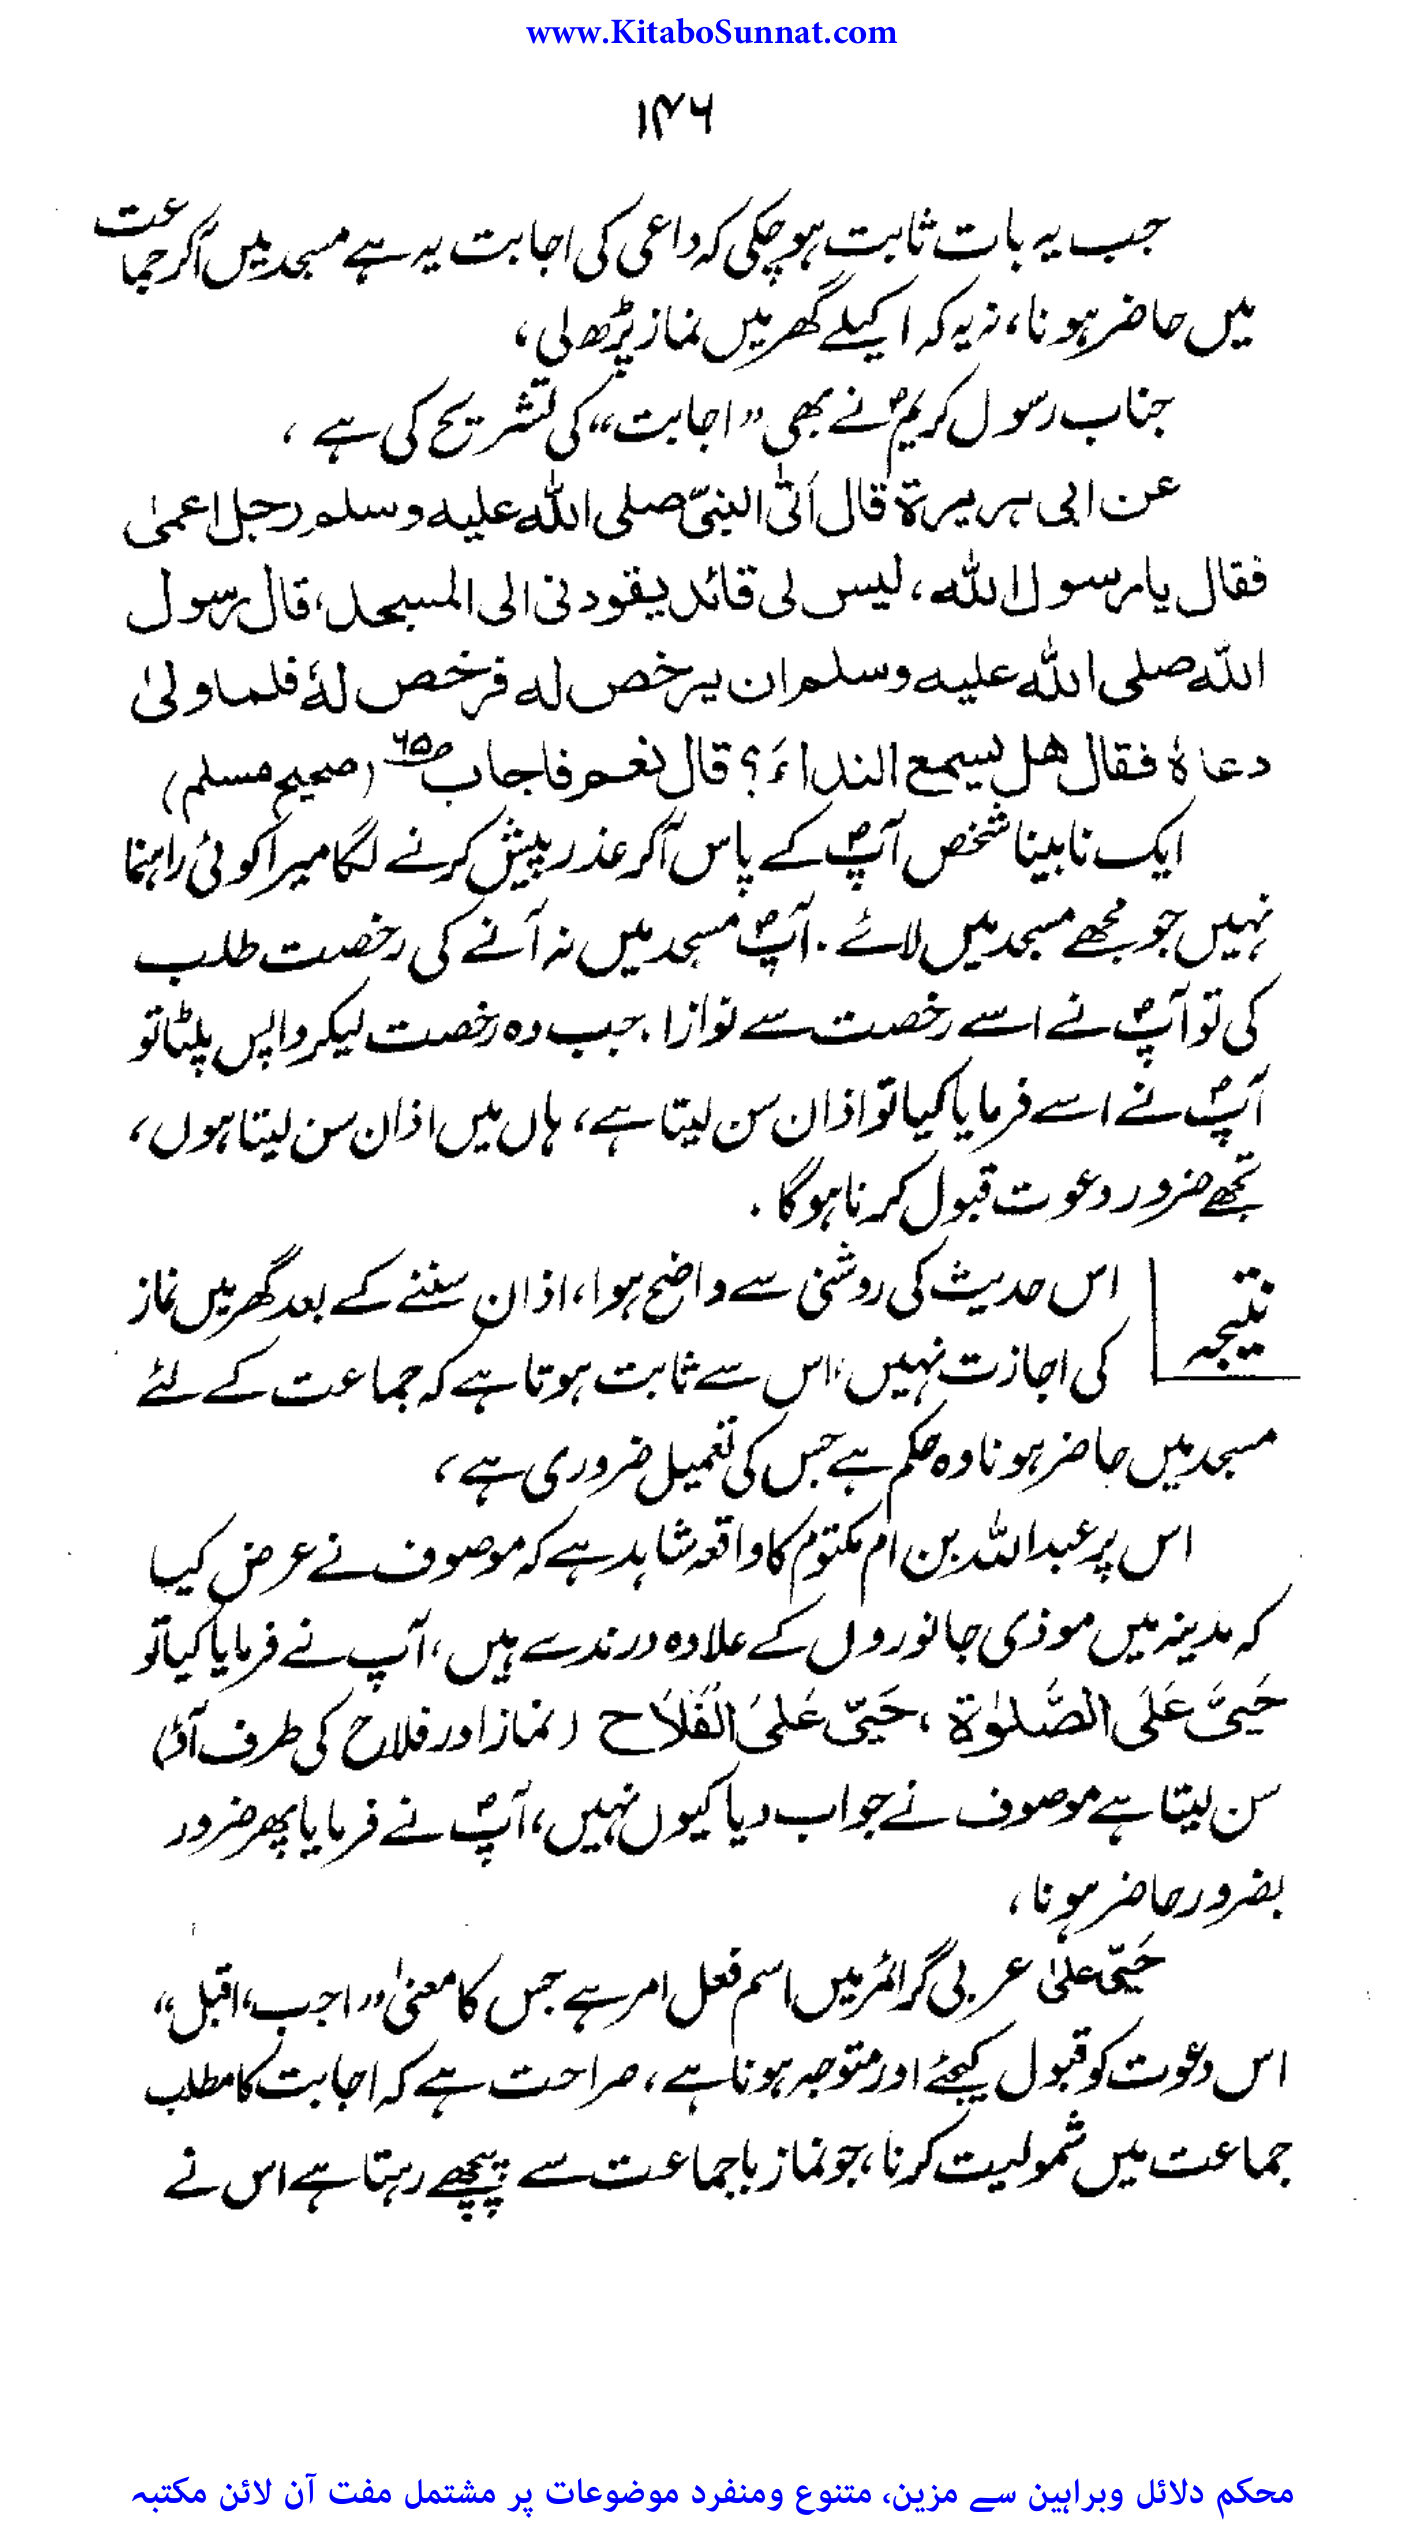 www.KitaboSunnat.com
۱۴۶
جب یہ بات ثابت ہوچکی کہ داعی کی اجابت یہ ہے مسجد میں آکر جماعت
میں حاضر ہونا، نہ یہ کہ اکیلے گھر میں نماز پڑھ لی،
جناب رسول کریمؐ نے بھی ”اجابت“ کی تشریح کی ہے ،
عن ابی ہریرۃ قال اَتٰی النبیّ صلی اللہ علیہ وسلم رجل اعمیٰ
فقال یا رسول اللہ، لیس لی قائد یقودنی الی المسجد، قال رسول
اللہ صلی اللہ علیہ وسلم ان یرخص لہ فرخص لہٗ فلما ولیٰ
دعاہٗ فقال ھل یسمع النداءَ؟ قال نعم فاجاب ص۶۵ (صحیح مسلم)
ایک نابینا شخص آپؐ کے پاس آکر عذر پیش کرنے لگا میرا کوئی راہنما
نہیں جو مجھے مسجد میں لائے ۔ آپؐ مسجد میں نہ آنے کی رخصت طلب
کی تو آپؐ نے اسے رخصت سے نوازا ۔ جب وہ رخصت لیکر واپس پلٹا تو
آپؐ نے اسے فرمایا کیا تو اذان سن لیتا ہے، ہاں میں اذان سن لیتا ہوں،
تجھے ضرور دعوت قبول کرنا ہوگا ۔
نتیجہ اس حدیث کی روشنی سے واضح ہوا، اذان سننے کے بعد گھر میں نماز
کی اجازت نہیں، اس سے ثابت ہوتا ہے کہ جماعت کے لئے
مسجد میں حاضر ہونا وہ حکم ہے جس کی تعمیل ضروری ہے،
اس پر عبداللہ بن ام مکتوم کا واقعہ شاہد ہے کہ موصوف نے عرض کیا
کہ مدینہ میں موذی جانوروں کے علاوہ درندے ہیں، آپ نے فرمایا کیا تو
حَیَّ عَلَی الصَّلٰوۃ ، حَیّ عَلیَ الْفَلَاَح (نماز اور فلاح کی طرف آؤ)
سن لیتا ہے موصوف نے جواب دیا کیوں نہیں، آپؐ نے فرمایا پھر ضرور
بضرور حاضر ہونا ،
حَیّ علیٰ عربی گرائمر میں اسم فعل امر ہے جس کا معنیٰ ”اجب، اقبل“
اس دعوت کو قبول کیجئے اور متوجہ ہونا ہے، صراحت ہے کہ اجابت کا مطلب
جماعت میں شمولیت کرنا، جو نماز باجماعت سے پیچھے رہتا ہے اس نے
محکم دلائل وبراہین سے مزین، متنوع ومنفرد موضوعات پر مشتمل مفت آن لائن مکتبہ